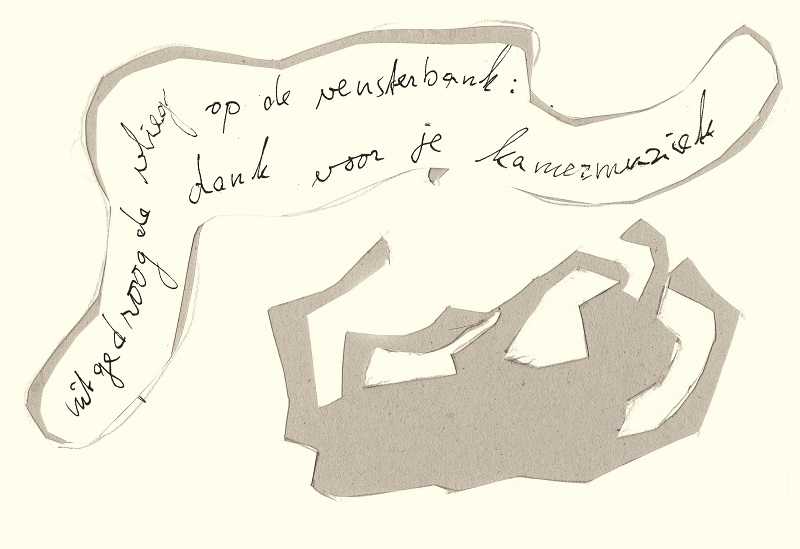 uitgedroogde vlieg
op de vensterbank:
dank voor je kamermuziek